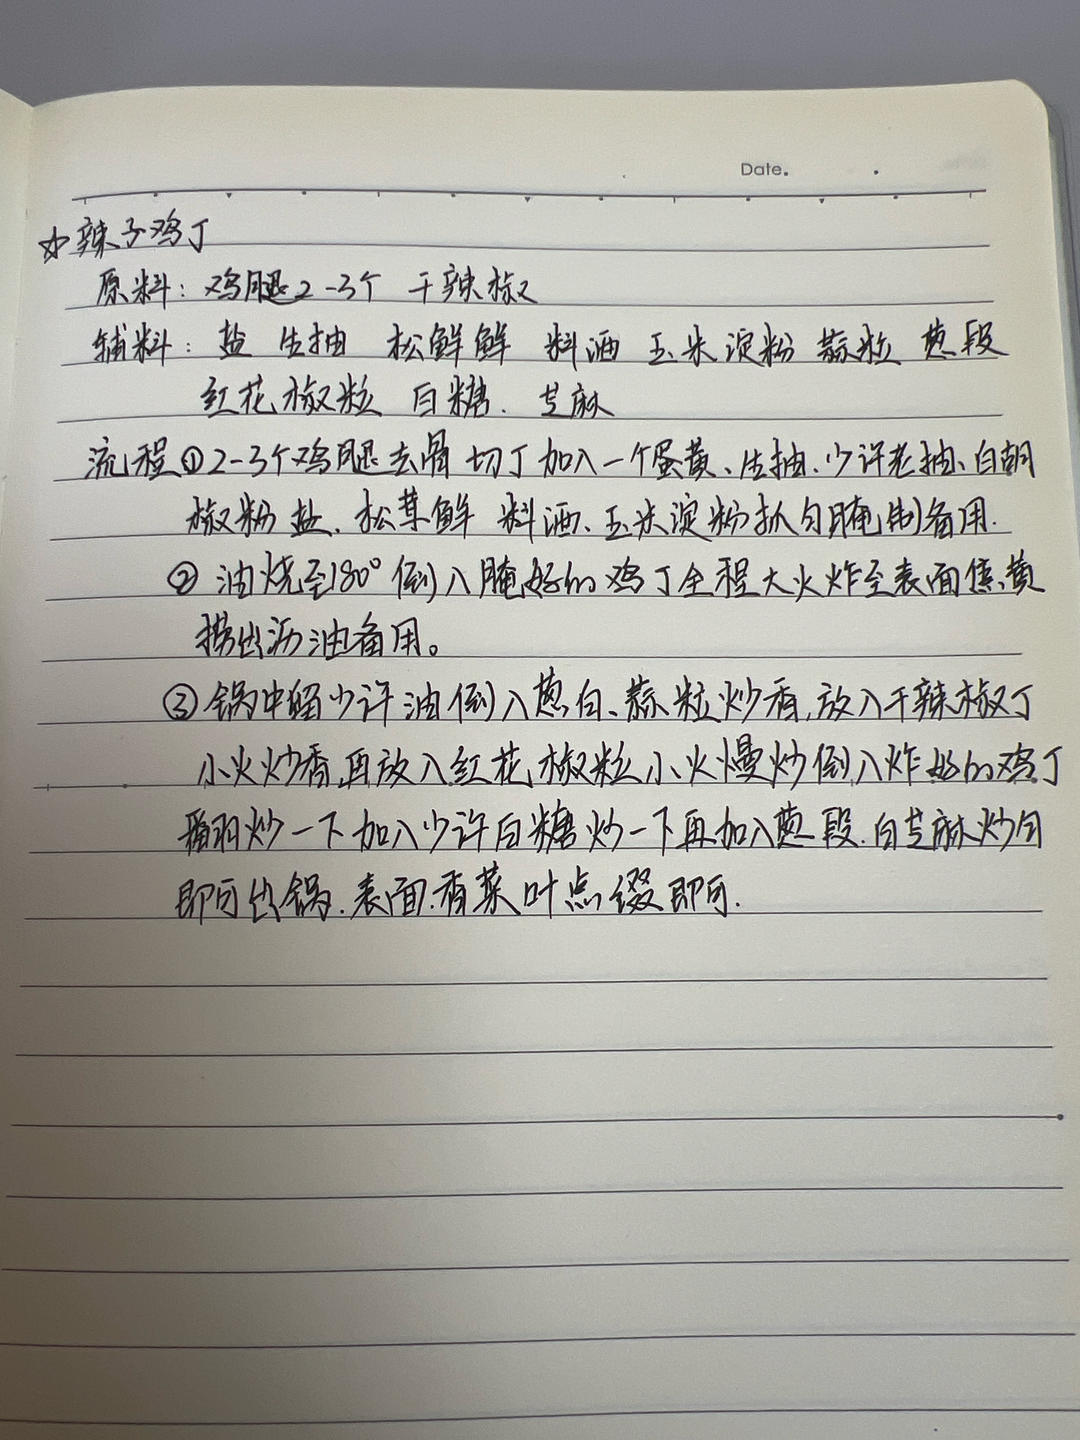 Date.
☆辣子鸡丁
原料: 鸡腿2-3个 干辣椒
辅料: 盐 生抽 松鲜鲜 料酒 玉米淀粉 蒜粒 葱段
红花椒粒 白糖. 芝麻
流程①2-3个鸡腿去骨 切丁加入一个蛋黄、生抽、少许老抽、白胡
椒粉 盐、松茸鲜 料酒、玉米淀粉抓匀腌制备用.
② 油烧至180° 倒入腌好的鸡丁全程大火炸至表面焦黄
捞出沥油备用。
③ 锅中留少许油倒入葱白、蒜粒炒香,放入干辣椒丁
小火炒香,再放入红花椒粒小火慢炒倒入炸好的鸡丁
翻炒一下加入少许白糖炒一下再加入葱段.白芝麻炒匀
即可出锅.表面.香菜叶点缀即可.